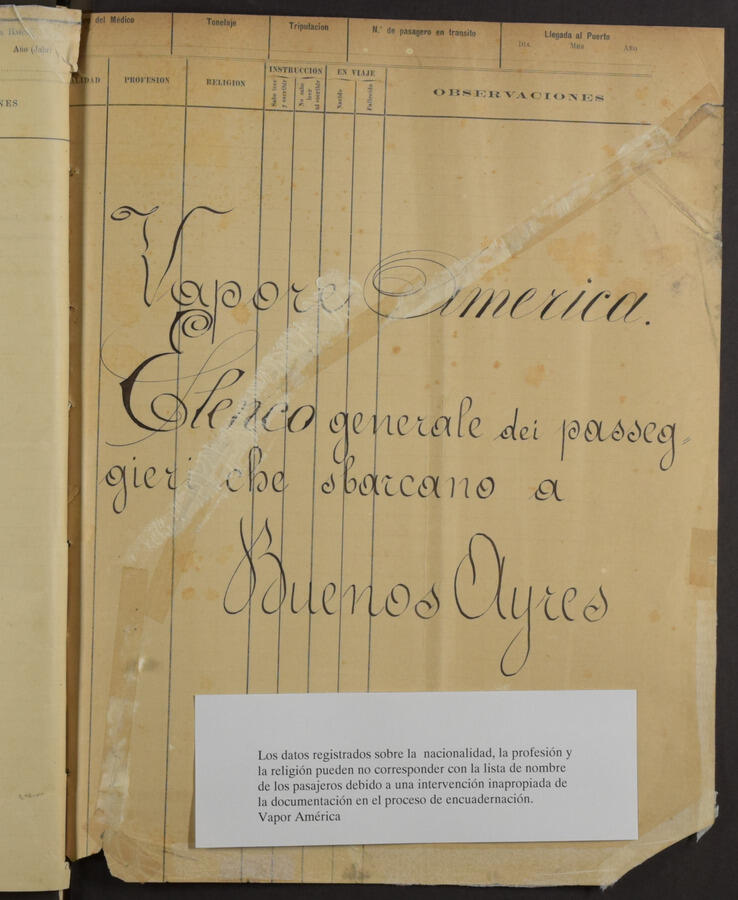 del Médico
Tonelaje
Tripulacion
N.º de pasagero en transito
Llegada al Puerto
Dia
Mes
Año
PROFESION
RELIGION
INSTRUCCION
Sabe leer y escribir
No sabe leer ni escribir
EN VIAJE
Nacido
Fallecido
OBSERVACIONES
Vapore America.
Elenco generale dei passeg=
gieri che sbarcano a
Buenos Ayres
Los datos registrados sobre la nacionalidad, la profesión y
la religión pueden no corresponder con la lista de nombre
de los pasajeros debido a una intervención inapropiada de
la documentación en el proceso de encuadernación.
Vapor América